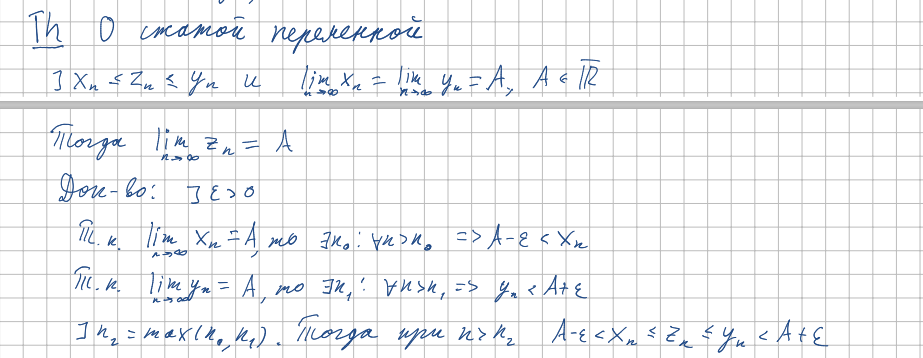 Th О сжатой переменной
] xₙ ≤ zₙ ≤ yₙ и lim_{n→∞} xₙ = lim_{n→∞} yₙ = A, A ∈ ℝ̅
Тогда lim_{n→∞} zₙ = A
Док-во: ] ε > 0
Т.к. lim_{n→∞} xₙ = A, то ∃n₀: ∀n>n₀ => A-ε < xₙ
Т.к. lim_{n→∞} yₙ = A, то ∃n₁: ∀n>n₁ => yₙ < A+ε
] n₂ = max(n₀, n₁). Тогда при n > n₂ A-ε < xₙ ≤ zₙ ≤ yₙ < A+ε